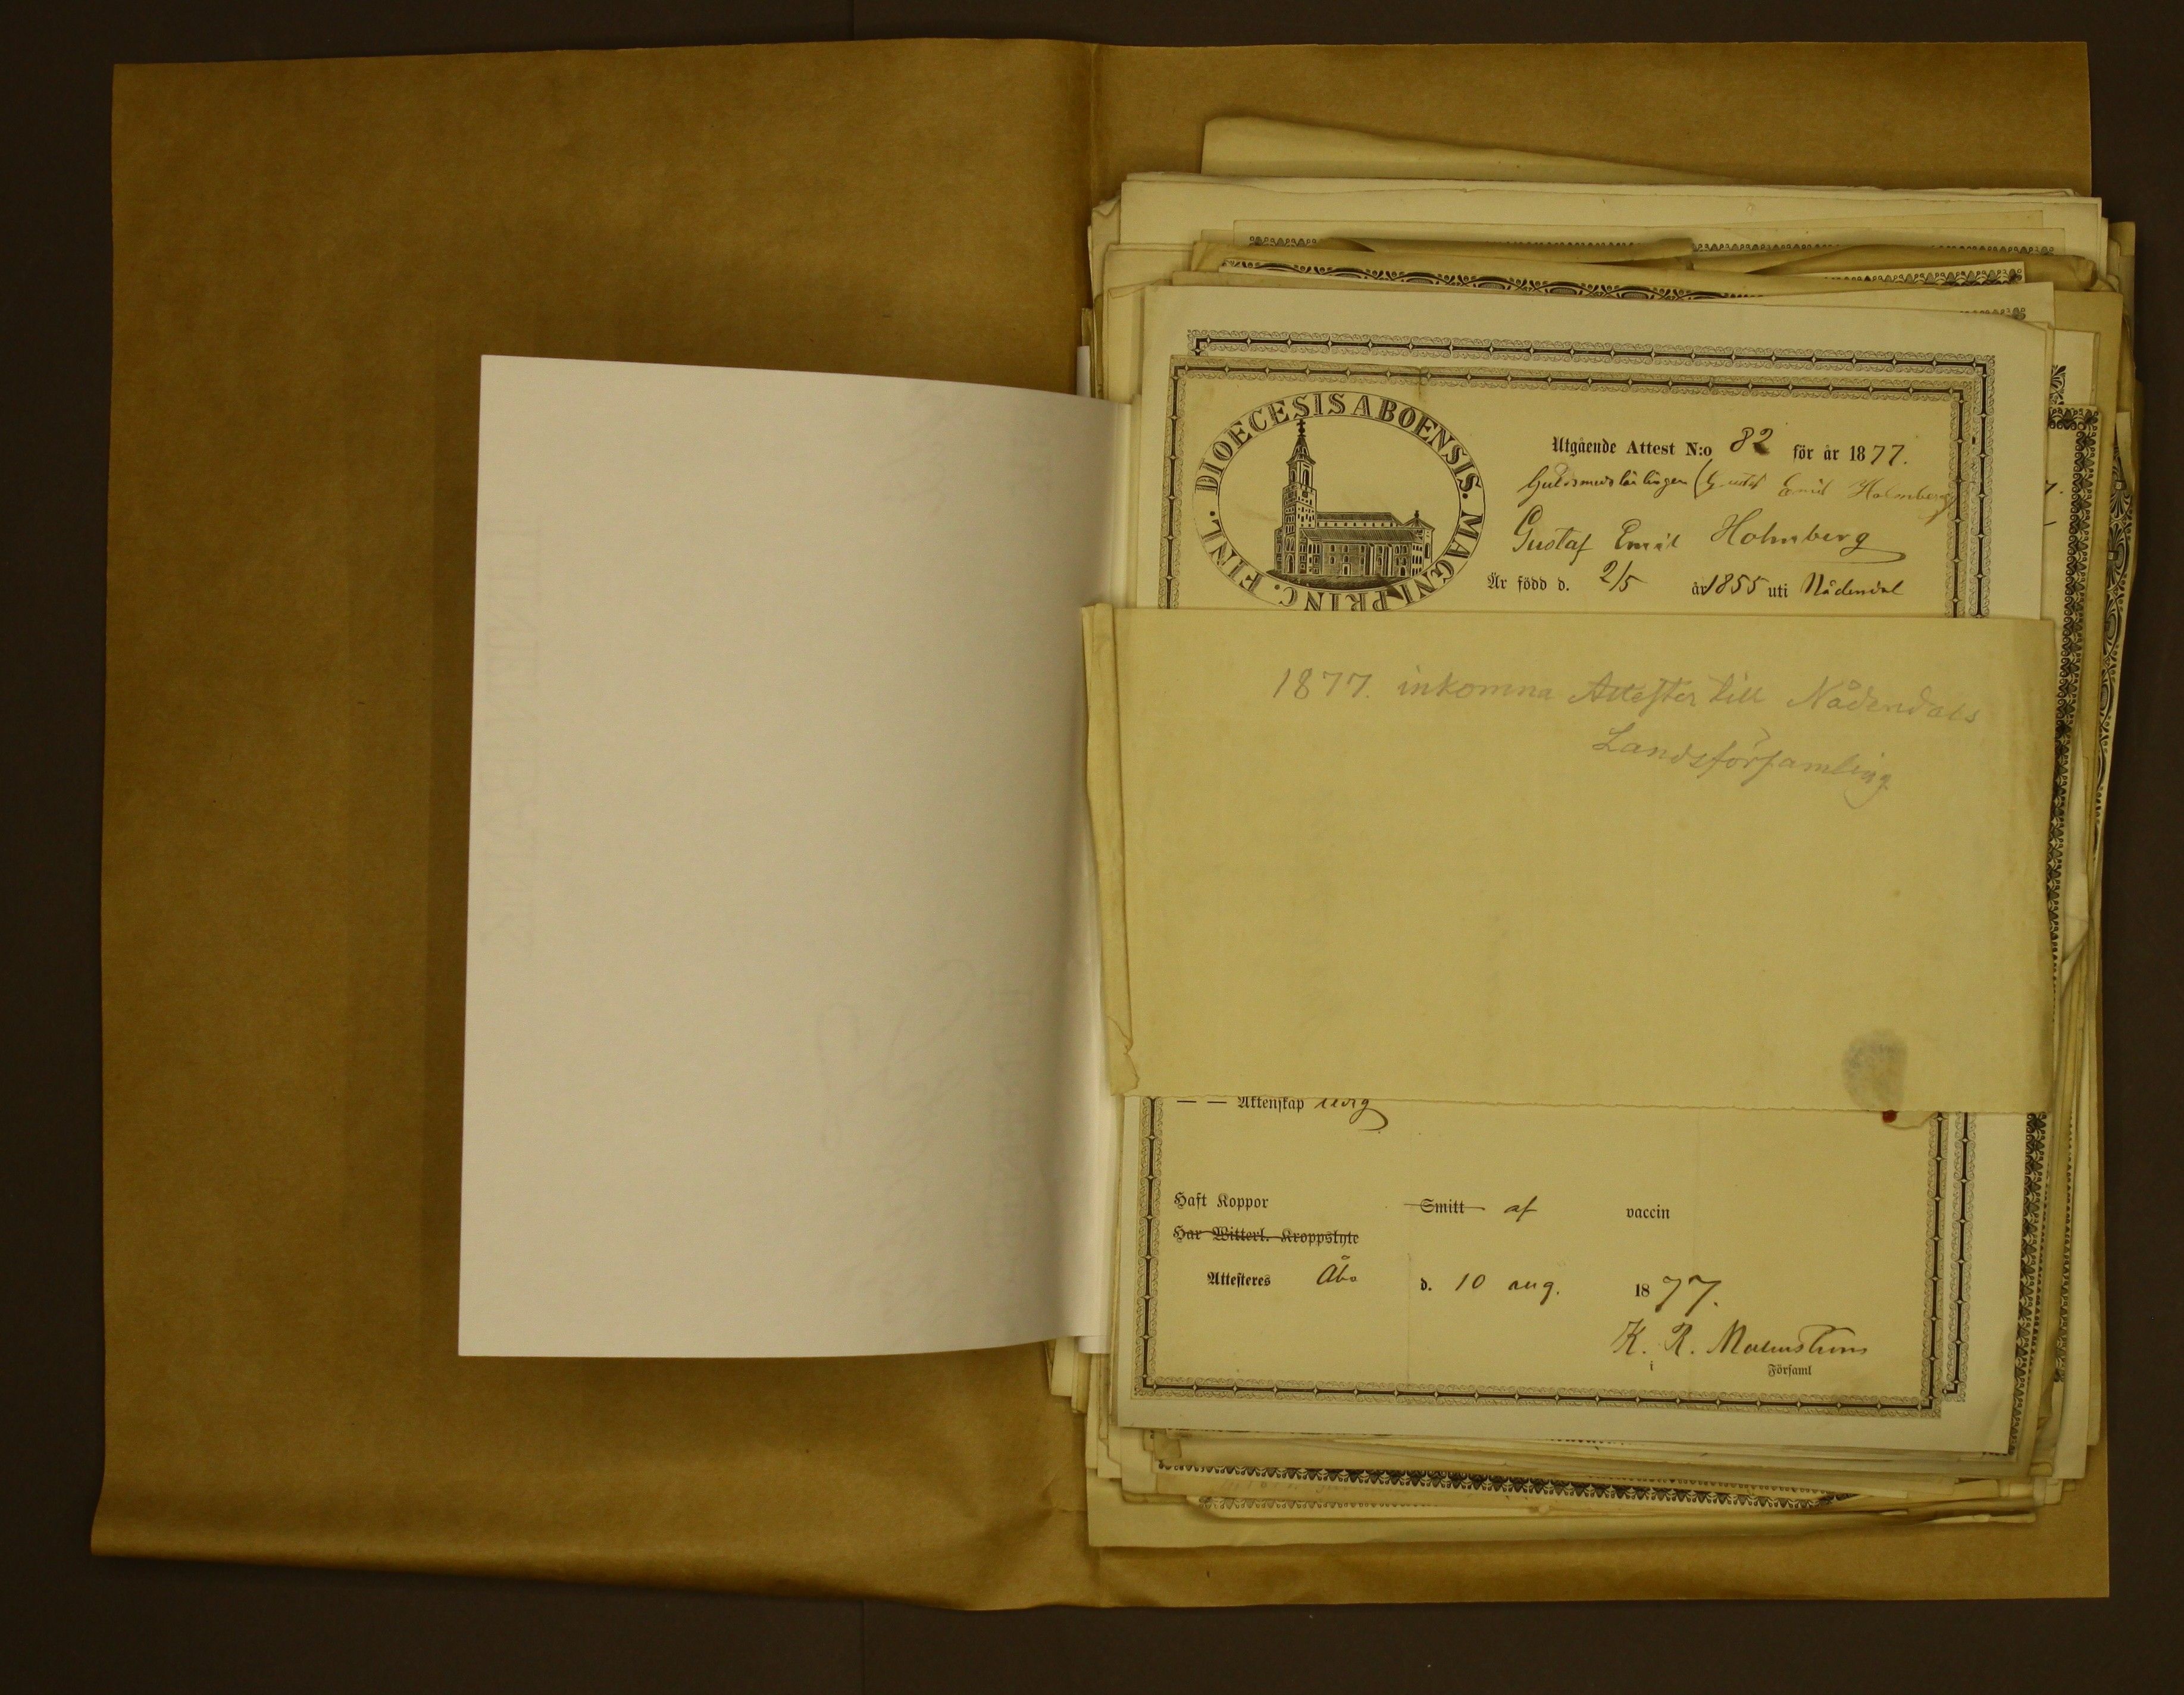 DIOECESIS ABOENSIS. MAGNI PRINC. FINL.
Utgående Attest N:o 82 för år 1877.
Guldsmedslärlingen (Gustaf Emil Holmberg)
Gustaf Emil Holmberg
Är född d. 2/5 år 1855 uti Nådendal
1877. inkomna Attester till Nådendals
Landsförsamling.
— — Äktenskap ledig
Haft Koppor Smitt af vaccin
Har Witterl. Kroppslyte
Attesteres Åbo d. 10 aug. 1877.
K. R. Malmström
i Församl